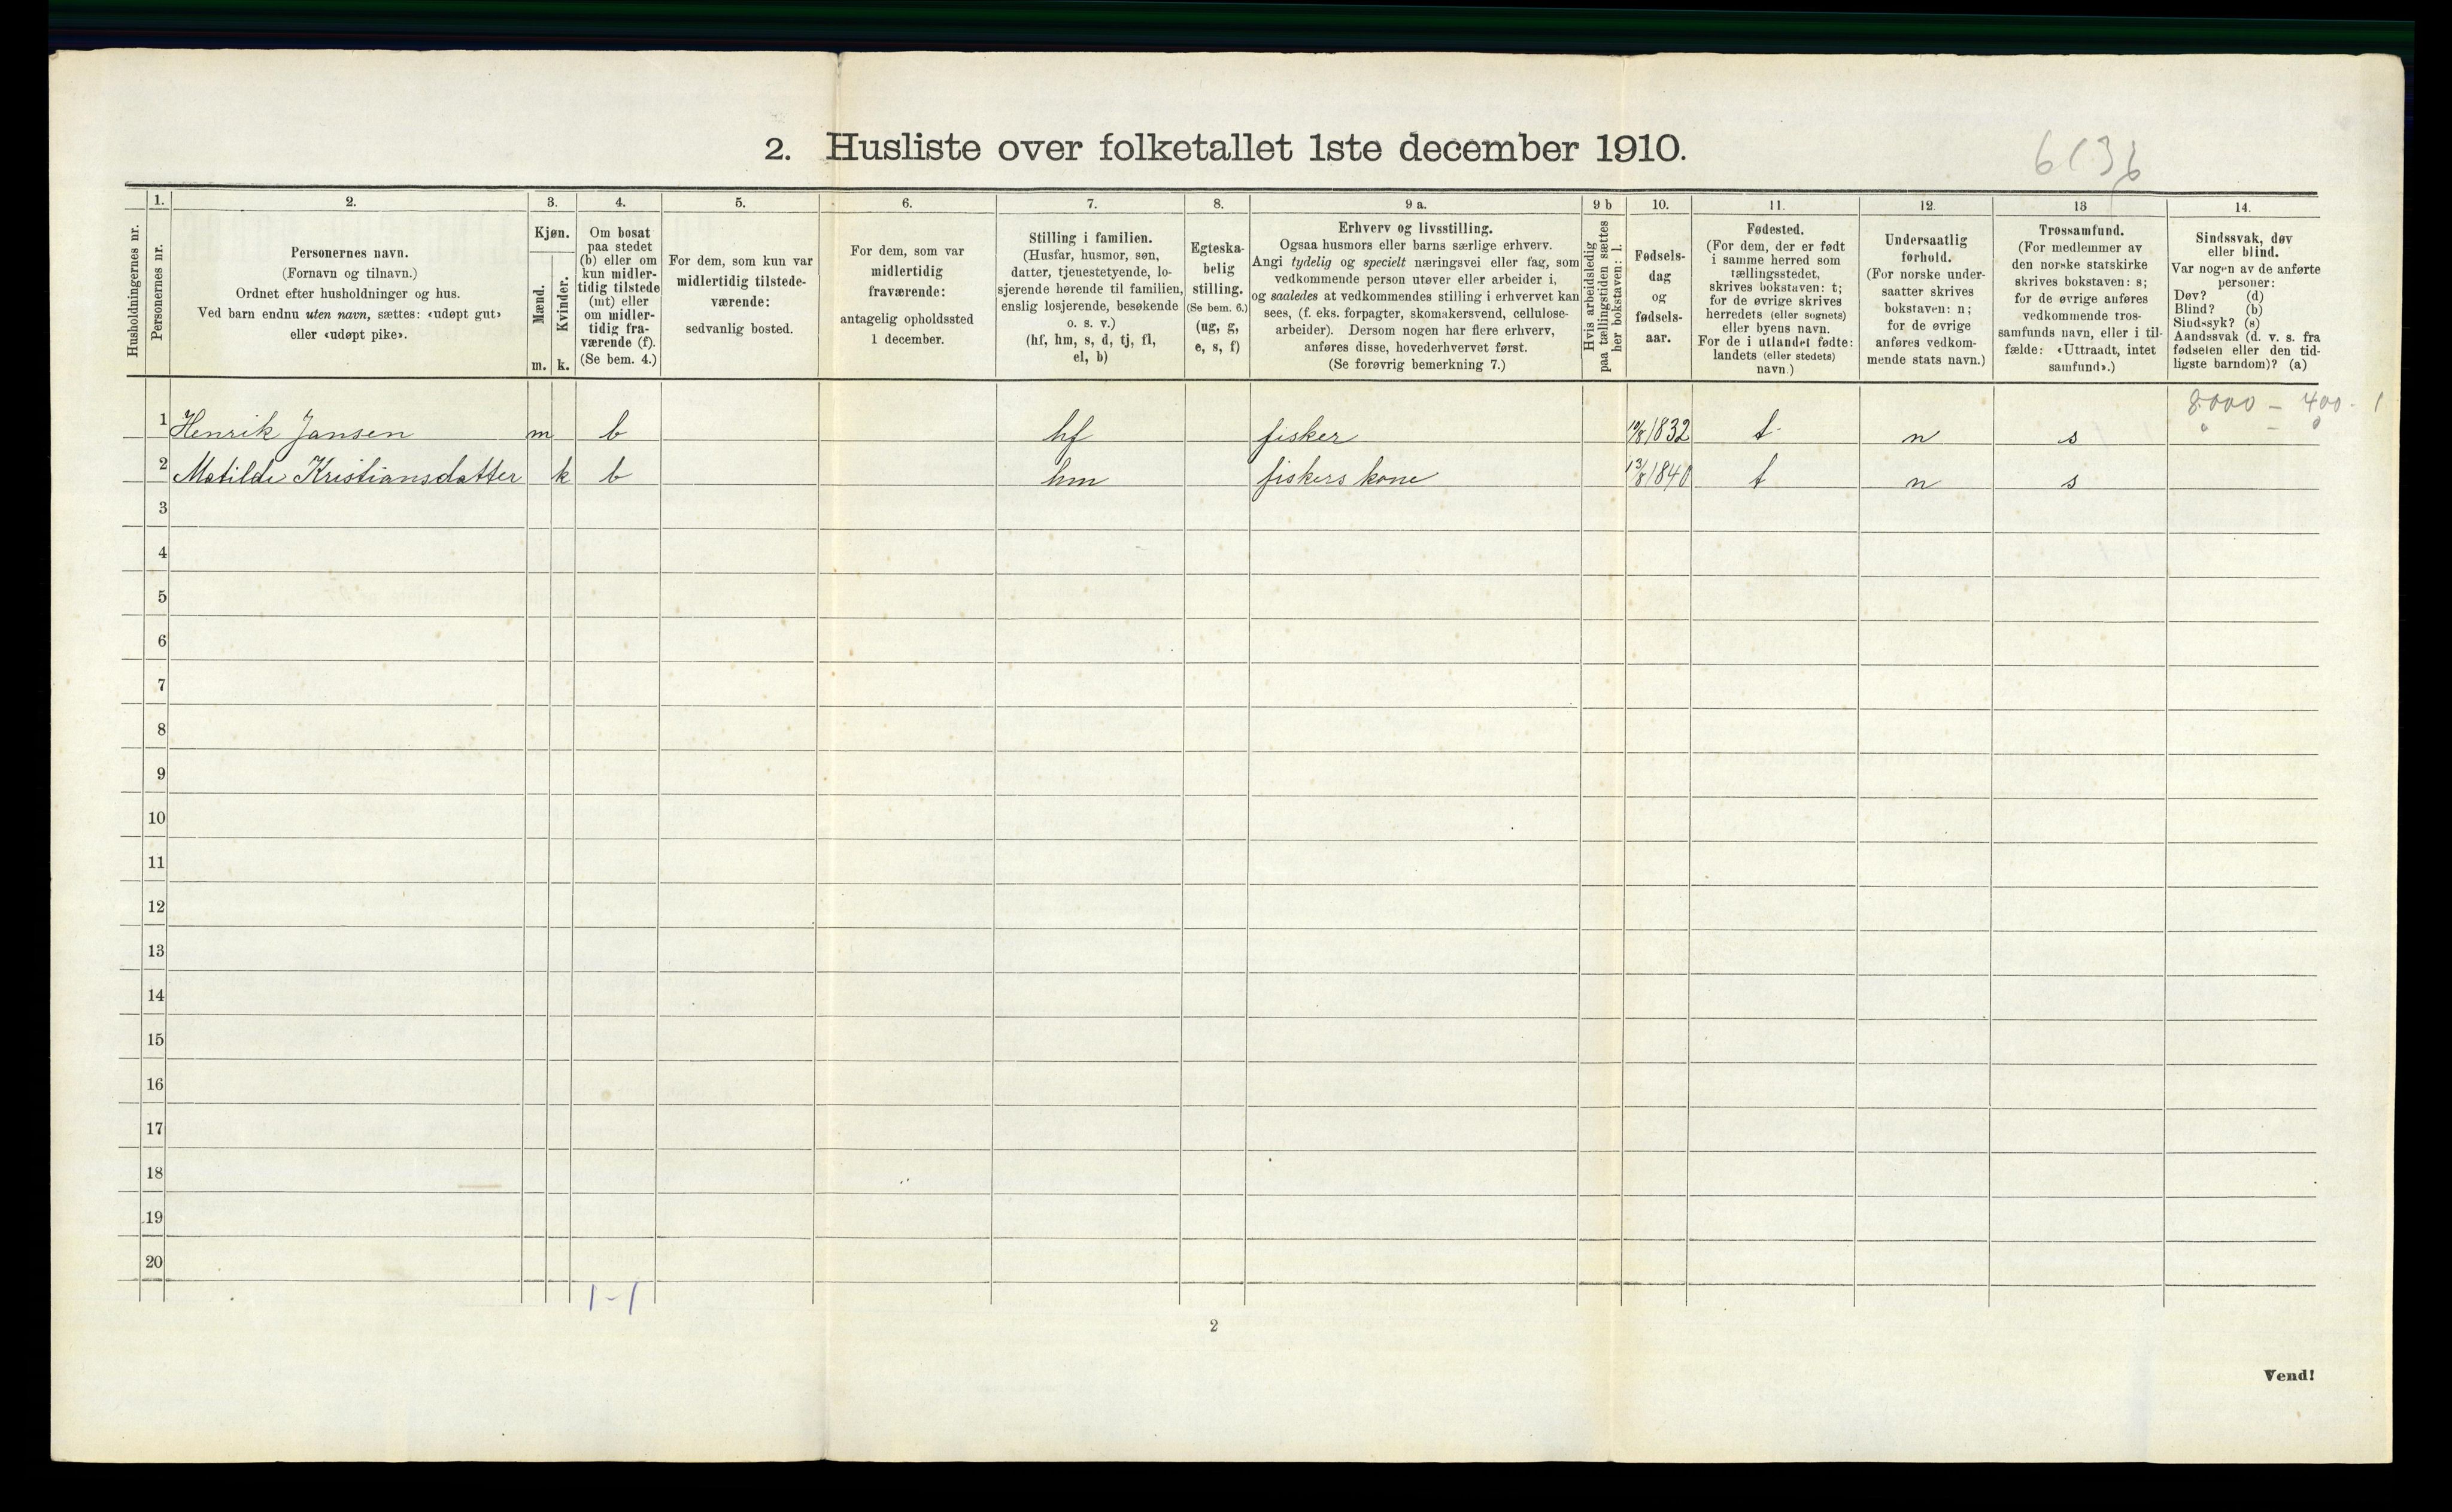 2. Husliste over folketallet 1ste december 1910.
Husholdningernes nr.
1.
Personernes nr.
2.
Personernes navn.
(Fornavn og tilnavn.)
Ordnet efter husholdninger og hus.
Ved barn endnu uten navn, sættes: «udøpt gut»
eller «udøpt pike».
3.
Kjøn.
Mænd.
Kvinder.
m. k.
4.
Om bosat
paa stedet
(b) eller om
kun midler-
tidig tilstede
(mt) eller
om midler-
tidig fra-
værende (f).
(Se bem. 4.)
5.
For dem, som kun var
midlertidig tilstede-
værende:
sedvanlig bosted.
6.
For dem, som var
midlertidig
fraværende:
antagelig opholdssted
1 december.
7.
Stilling i familien.
(Husfar, husmor, søn,
datter, tjenestetyende, lo-
sjerende hørende til familien,
enslig losjerende, besøkende
o. s. v.)
(hf, hm, s, d, tj, fl,
el, b)
8.
Egteska-
belig
stilling.
(Se bem. 6.)
(ug, g,
e, s, f)
9 a.
Erhverv og livsstilling.
Ogsaa husmors eller barns særlige erhverv.
Angi tydelig og specielt næringsvei eller fag, som
vedkommende person utøver eller arbeider i,
og saaledes at vedkommendes stilling i erhvervet kan
sees, (f. eks. forpagter, skomakersvend, cellulose-
arbeider). Dersom nogen har flere erhverv,
anføres disse, hovederhvervet først.
(Se forøvrig bemerkning 7.)
9 b
Hvis arbeidsledig
paa tællingstiden sættes
her bokstaven: l.
10.
Fødsels-
dag
og
fødsels-
aar.
11.
Fødested.
(For dem, der er født
i samme herred som
tællingsstedet,
skrives bokstaven: t;
for de øvrige skrives
herredets (eller sognets)
eller byens navn.
For de i utlandet fødte:
landets (eller stedets)
navn.)
12.
Undersaatlig
forhold.
(For norske under-
saatter skrives
bokstaven: n;
for de øvrige
anføres vedkom-
mende stats navn.)
13
Trossamfund.
(For medlemmer av
den norske statskirke
skrives bokstaven: s;
for de øvrige anføres
vedkommende tros-
samfunds navn, eller i til-
fælde: «Uttraadt, intet
samfund».)
14.
Sindssvak, døv
eller blind.
Var nogen av de anførte
personer:
Døv? (d)
Blind? (b)
Sindssyk? (s)
Aandssvak (d. v. s. fra
fødselen eller den tid-
ligste barndom)? (a)
8000 - 400 - 1
1 Henrik Jansen m b hf fisker 1832 t n s
2 Matilde Kristiansdatter k b hm fiskers kone 13/8 1840 t n s
3
4
5
6
7
8
9
10
11
12
13
14
15
16
17
18
19
20
1-1
2
Vend!